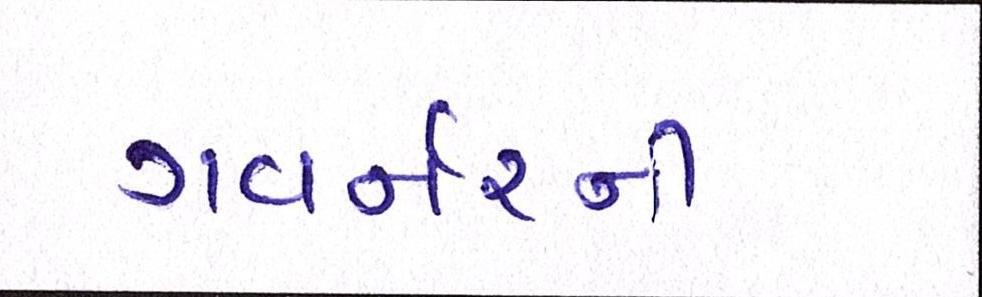 ગવર્નરની